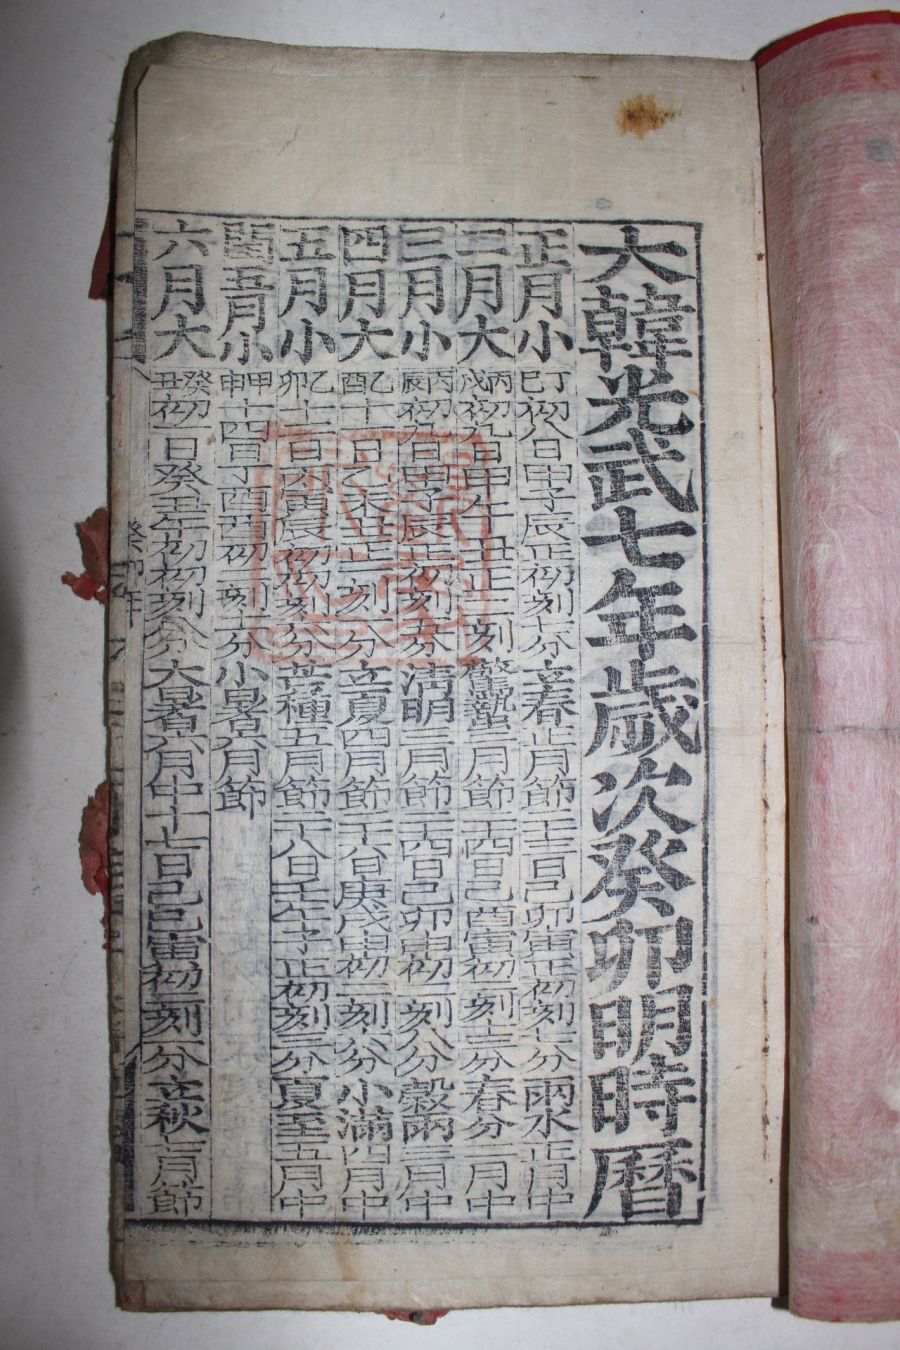 大韓光武七年歲次癸卯明時曆
正月小 丁巳 初八日甲子辰正初刻 分立春正月節 二十三日己卯寅正初刻 分雨水正月中
二月大 丙戌 初九日甲午丑正二刻 驚蟄二月節 二十四日己酉寅初二刻 分春分二月中
三月小 丙辰 初九日 辰正初刻 分清明三月節 二十四日己卯申初 刻八分穀雨三月中
四月大 乙酉 十一日乙未丑正 刻 分立夏四月節 二十六日庚戌申初 刻 分小滿四月中
五月小 乙卯 十二日丙寅辰初初刻 分芒種五月節 二十八日壬午子正初刻三分夏至五月中
閏五月小 甲申 十四日丁酉酉初二刻 分小暑六月節
六月大 癸丑 初一日癸丑午初初刻 分大暑六月中 十七日己巳寅初二刻一分立秋七月節
癸卯年